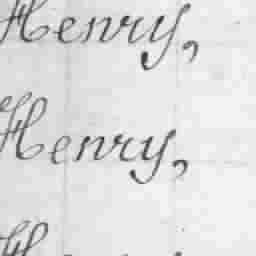 Henry,
Henry,